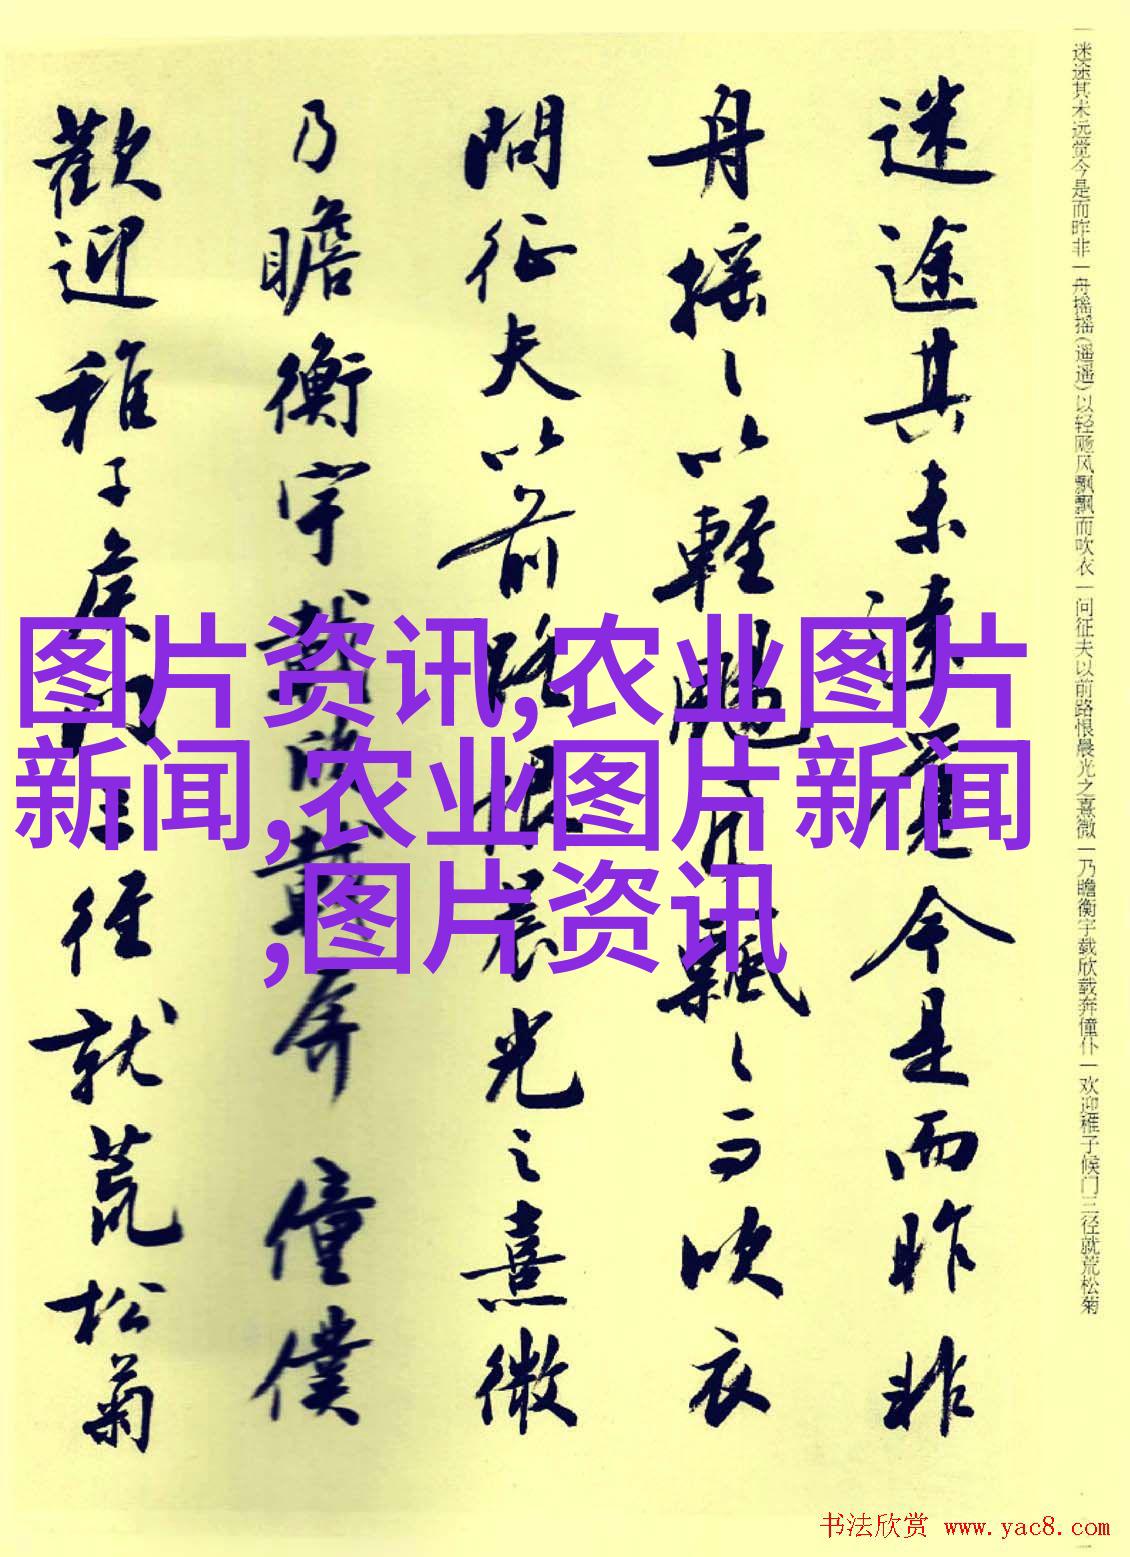 一迷途其未远觉今是而昨非一舟摇摇(遥遥)以轻飏风飘飘而吹衣一问征夫以前路恨晨光之熹微一乃瞻衡宇载欣载奔僮仆一欢迎稚子候门三径就荒松菊
迷途其未遠覺今是而昨非
舟摇〻以輕颺風飄〻而吹衣
問征夫以前路恨晨光之熹微
乃瞻衡宇載欣載奔僮僕
歡迎稚子候門三徑就荒松菊
图片资讯,农业图片
新闻,农业图片新闻
,图片资讯
书法欣赏 www.yac8.com